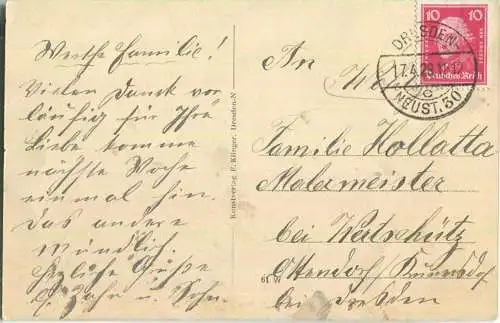 Werthe Familie!
Vielen Dank vor
läufig für Ihre
Liebe komme
nächste Woche
einmal hin.
Das andere
mündlich.
Herzliche Grüße
u. Sohn.
Kunstverlag E. Klieger, Dresden-N
61
An
Familie Hollatta
Malermeister
bei
Ottendorf/
bei Dresden
10 10
Deutsches Reich
DRESDEN-
7.4.29.
NEUST. 30